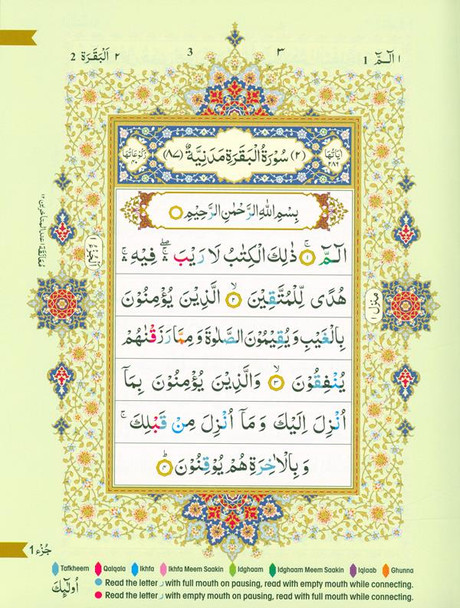 2 اَلْبَقَرَة ٢
3 ٣
1 الٓمّٓ ١
اٰيَاتُهَا ٢٨٦
(٢) سُوْرَةُ الْبَقَرَةِ مَدَنِيَّةٌ (٨٧)
رُكُوْعَاتُهَا ٤٠
بِسْمِ اللهِ الرَّحْمٰنِ الرَّحِيْمِ
الٓمّٓ ۝١ ذٰلِكَ الْكِتٰبُ لَا رَيْبَ ۛۖ فِيْهِ ۛ
هُدًى لِّلْمُتَّقِيْنَ ۝٢ الَّذِيْنَ يُؤْمِنُوْنَ
بِالْغَيْبِ وَيُقِيْمُوْنَ الصَّلٰوةَ وَمِمَّا رَزَقْنٰهُمْ
يُنْفِقُوْنَ ۝٣ وَالَّذِيْنَ يُؤْمِنُوْنَ بِمَآ
اُنْزِلَ اِلَيْكَ وَمَآ اُنْزِلَ مِنْ قَبْلِكَ ۚ
وَبِالْاٰخِرَةِ هُمْ يُوْقِنُوْنَ ۝٤
اَلْجُزْءُ ١
مَنْزِل ١
1 جُزْء ١
Tafkheem Qalqala Ikhfa Ikhfa Meem Saakin Idghaam Idghaam Meem Saakin Iqlaab Ghunna
Read the letter ر with full mouth on pausing, read with empty mouth while connecting.
Read the letter ر with empty mouth on pausing, read with full mouth while connecting.
اُولٰٓئِكَ